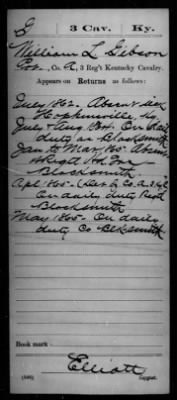 G 3 Cav. Ky.
William L Gibson
Pvt., Co. A, 3 Reg't Kentucky Cavalry.
Appears on Returns as follows:
July 1862. Absent sick
Hopkinsville Ky
July & Aug 1864. On daily
duty as Blacksmith
Jan to Mar 1865 Absent
Blacksmith
Apl 1865-
On daily duty Regt
Blacksmith
May 1865- On daily
duty Co Blksmith
Book mark:
Elliott
(546) Copyist.